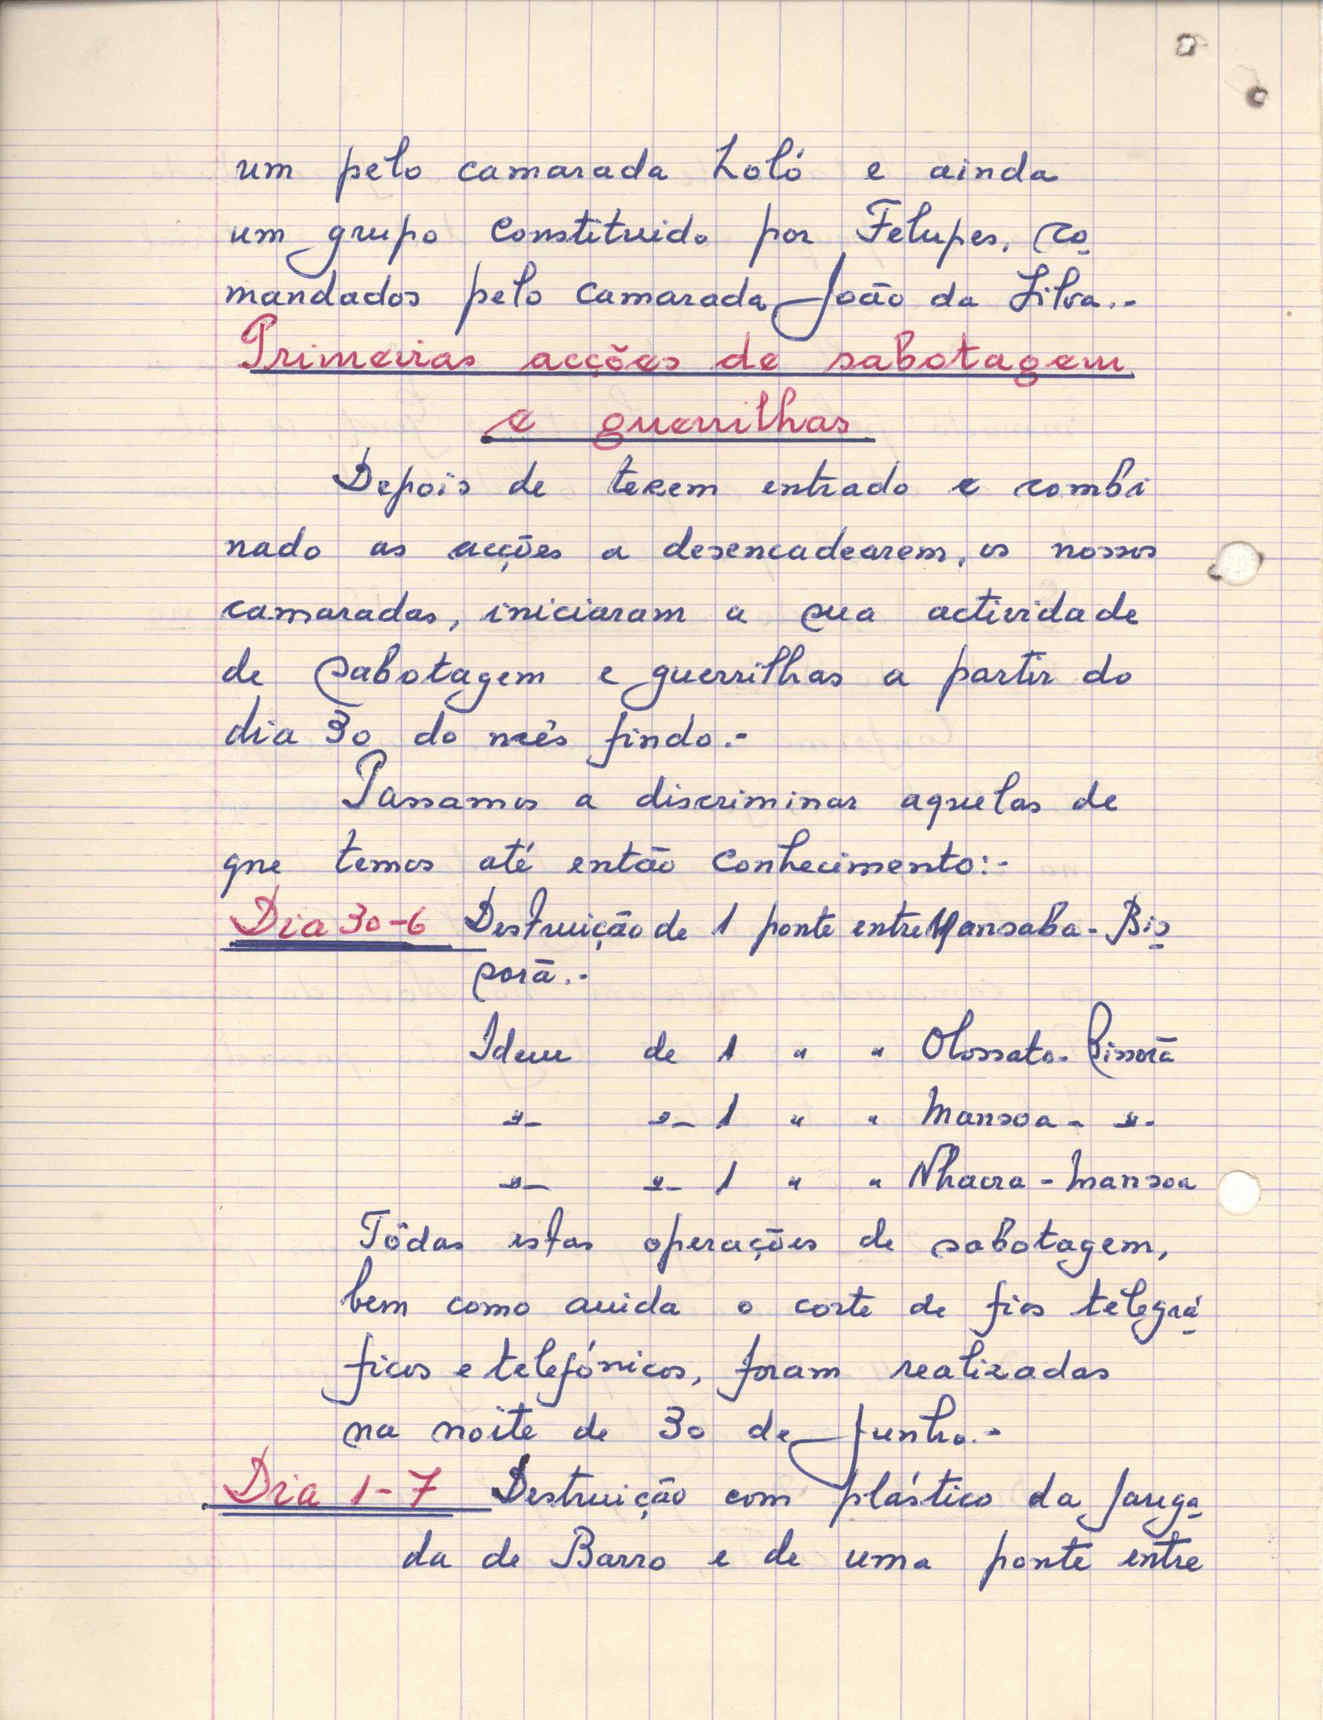 um pelo camarada Loló e ainda
um grupo constituido por Felupes, co-
mandados pelo camarada João da Silva.-
Primeiras acções de sabotagem
e guerrilhas
Depois de terem entrado e combi
nado as acções a desencadearem, os nossos
camaradas, iniciaram a sua actividade
de sabotagem e guerrilhas a partir do
dia 30 do mês findo.-
Passamos a discriminar aquelas de
que temos até então conhecimento:-
Dia 30-6 Destruição de 1 ponte entre Mansaba-Bis-
sorã.-
Idem de 1 " " Olossato-Bissorã
-"- -"- 1 " " Mansoa- -"-
-"- -"- 1 " " Nhacra-Mansoa
Tôdas estas operações de sabotagem,
bem como ainda o corte de fios telegrá-
ficos e telefónicos, foram realizadas
na noite de 30 de Junho.-
Dia 1-7 Destruição com plástico da Janga-
da de Barro e de uma ponte entre